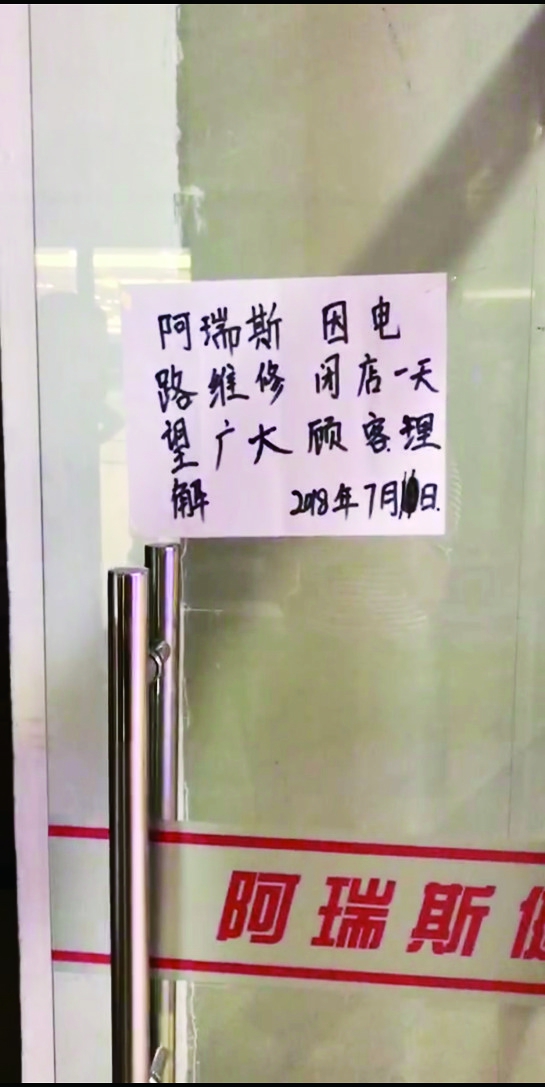 阿瑞斯 因电
路维修 闭店一天
望广大顾客理
解 2018年7月日.
阿瑞斯